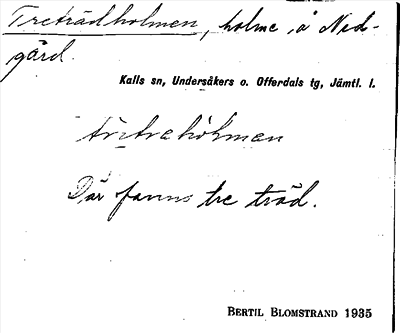 Treträdholmen, holme å Ned-
gård.
Kalls sn, Undersåkers o. Offerdals tg, Jämtl. l.
Där fanns tre träd.
BERTIL BLOMSTRAND 1935